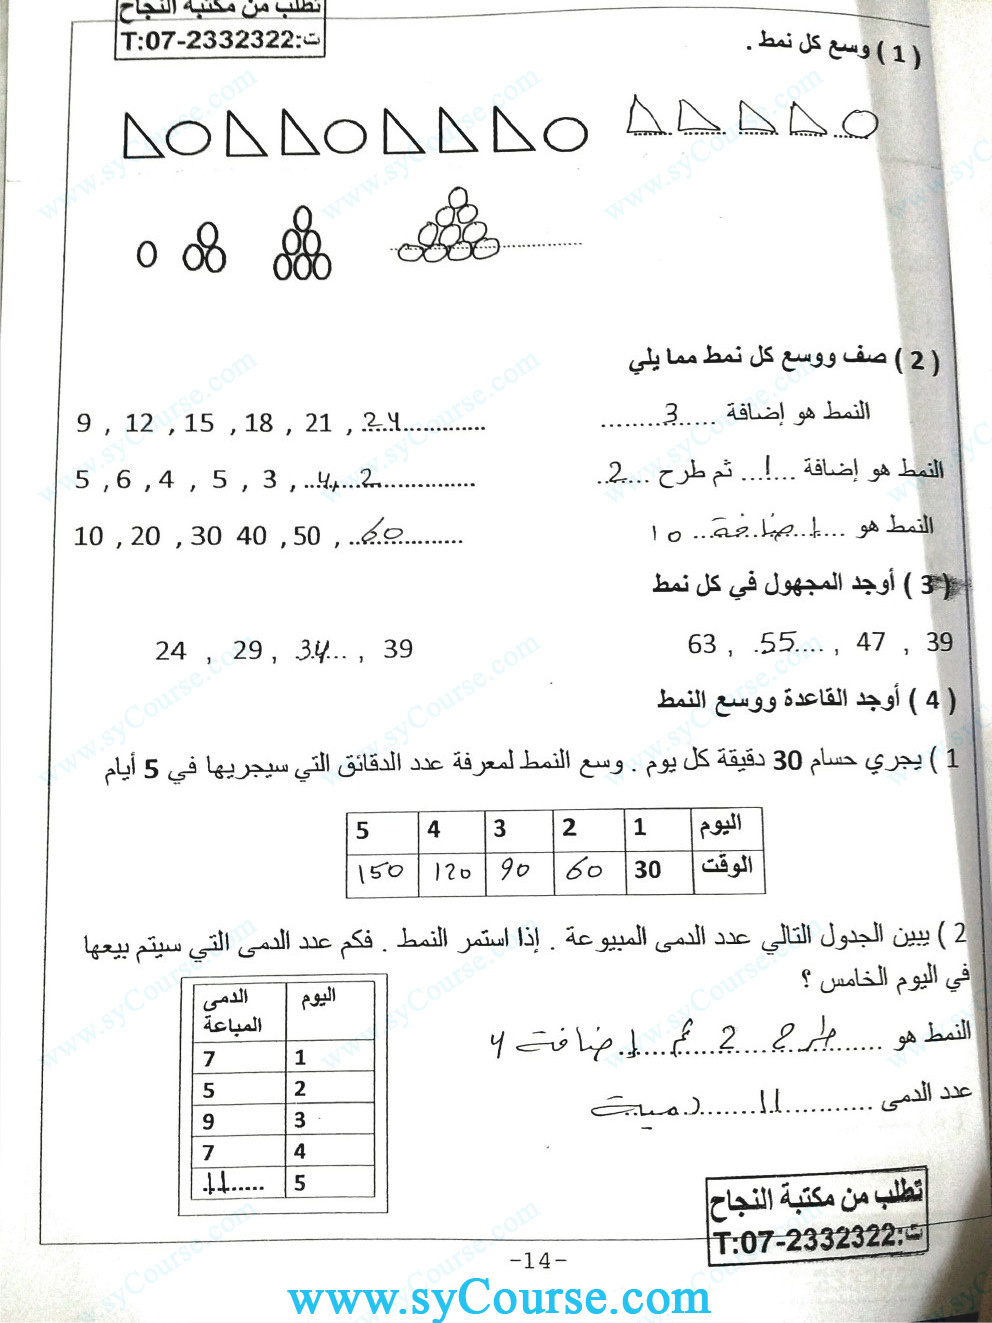 تطلب من مكتبة النجاح
ت:T:07-2332322
( 1 ) وسع كل نمط .
( 2 ) صف ووسع كل نمط مما يلي
النمط هو إضافة ....3....
9 , 12 , 15 , 18 , 21 , ...24...
النمط هو إضافة ...1... ثم طرح ...2...
5 , 6 , 4 , 5 , 3 , ...4, ...2...
النمط هو ...اضافة... ١٠
10 , 20 , 30 40 , 50 , ...60...
( 3 ) أوجد المجهول في كل نمط
63 , .55.... , 47 , 39
24 , 29 , .34... , 39
( 4 ) أوجد القاعدة ووسع النمط
1 ) يجري حسام 30 دقيقة كل يوم . وسع النمط لمعرفة عدد الدقائق التي سيجريها في 5 أيام
اليوم 1 2 3 4 5
الوقت 30 60 90 120 150
2 ) يبين الجدول التالي عدد الدمى المبيوعة . إذا استمر النمط . فكم عدد الدمى التي سيتم بيعها
في اليوم الخامس ؟
النمط هو ...طرح 2 ثم اضافة 4
عدد الدمى ...11... دمية
اليوم الدمى المباعة
1 7
2 5
3 9
4 7
5 11.....
تطلب من مكتبة النجاح
ت:T:07-2332322
-14-
www.syCourse.com